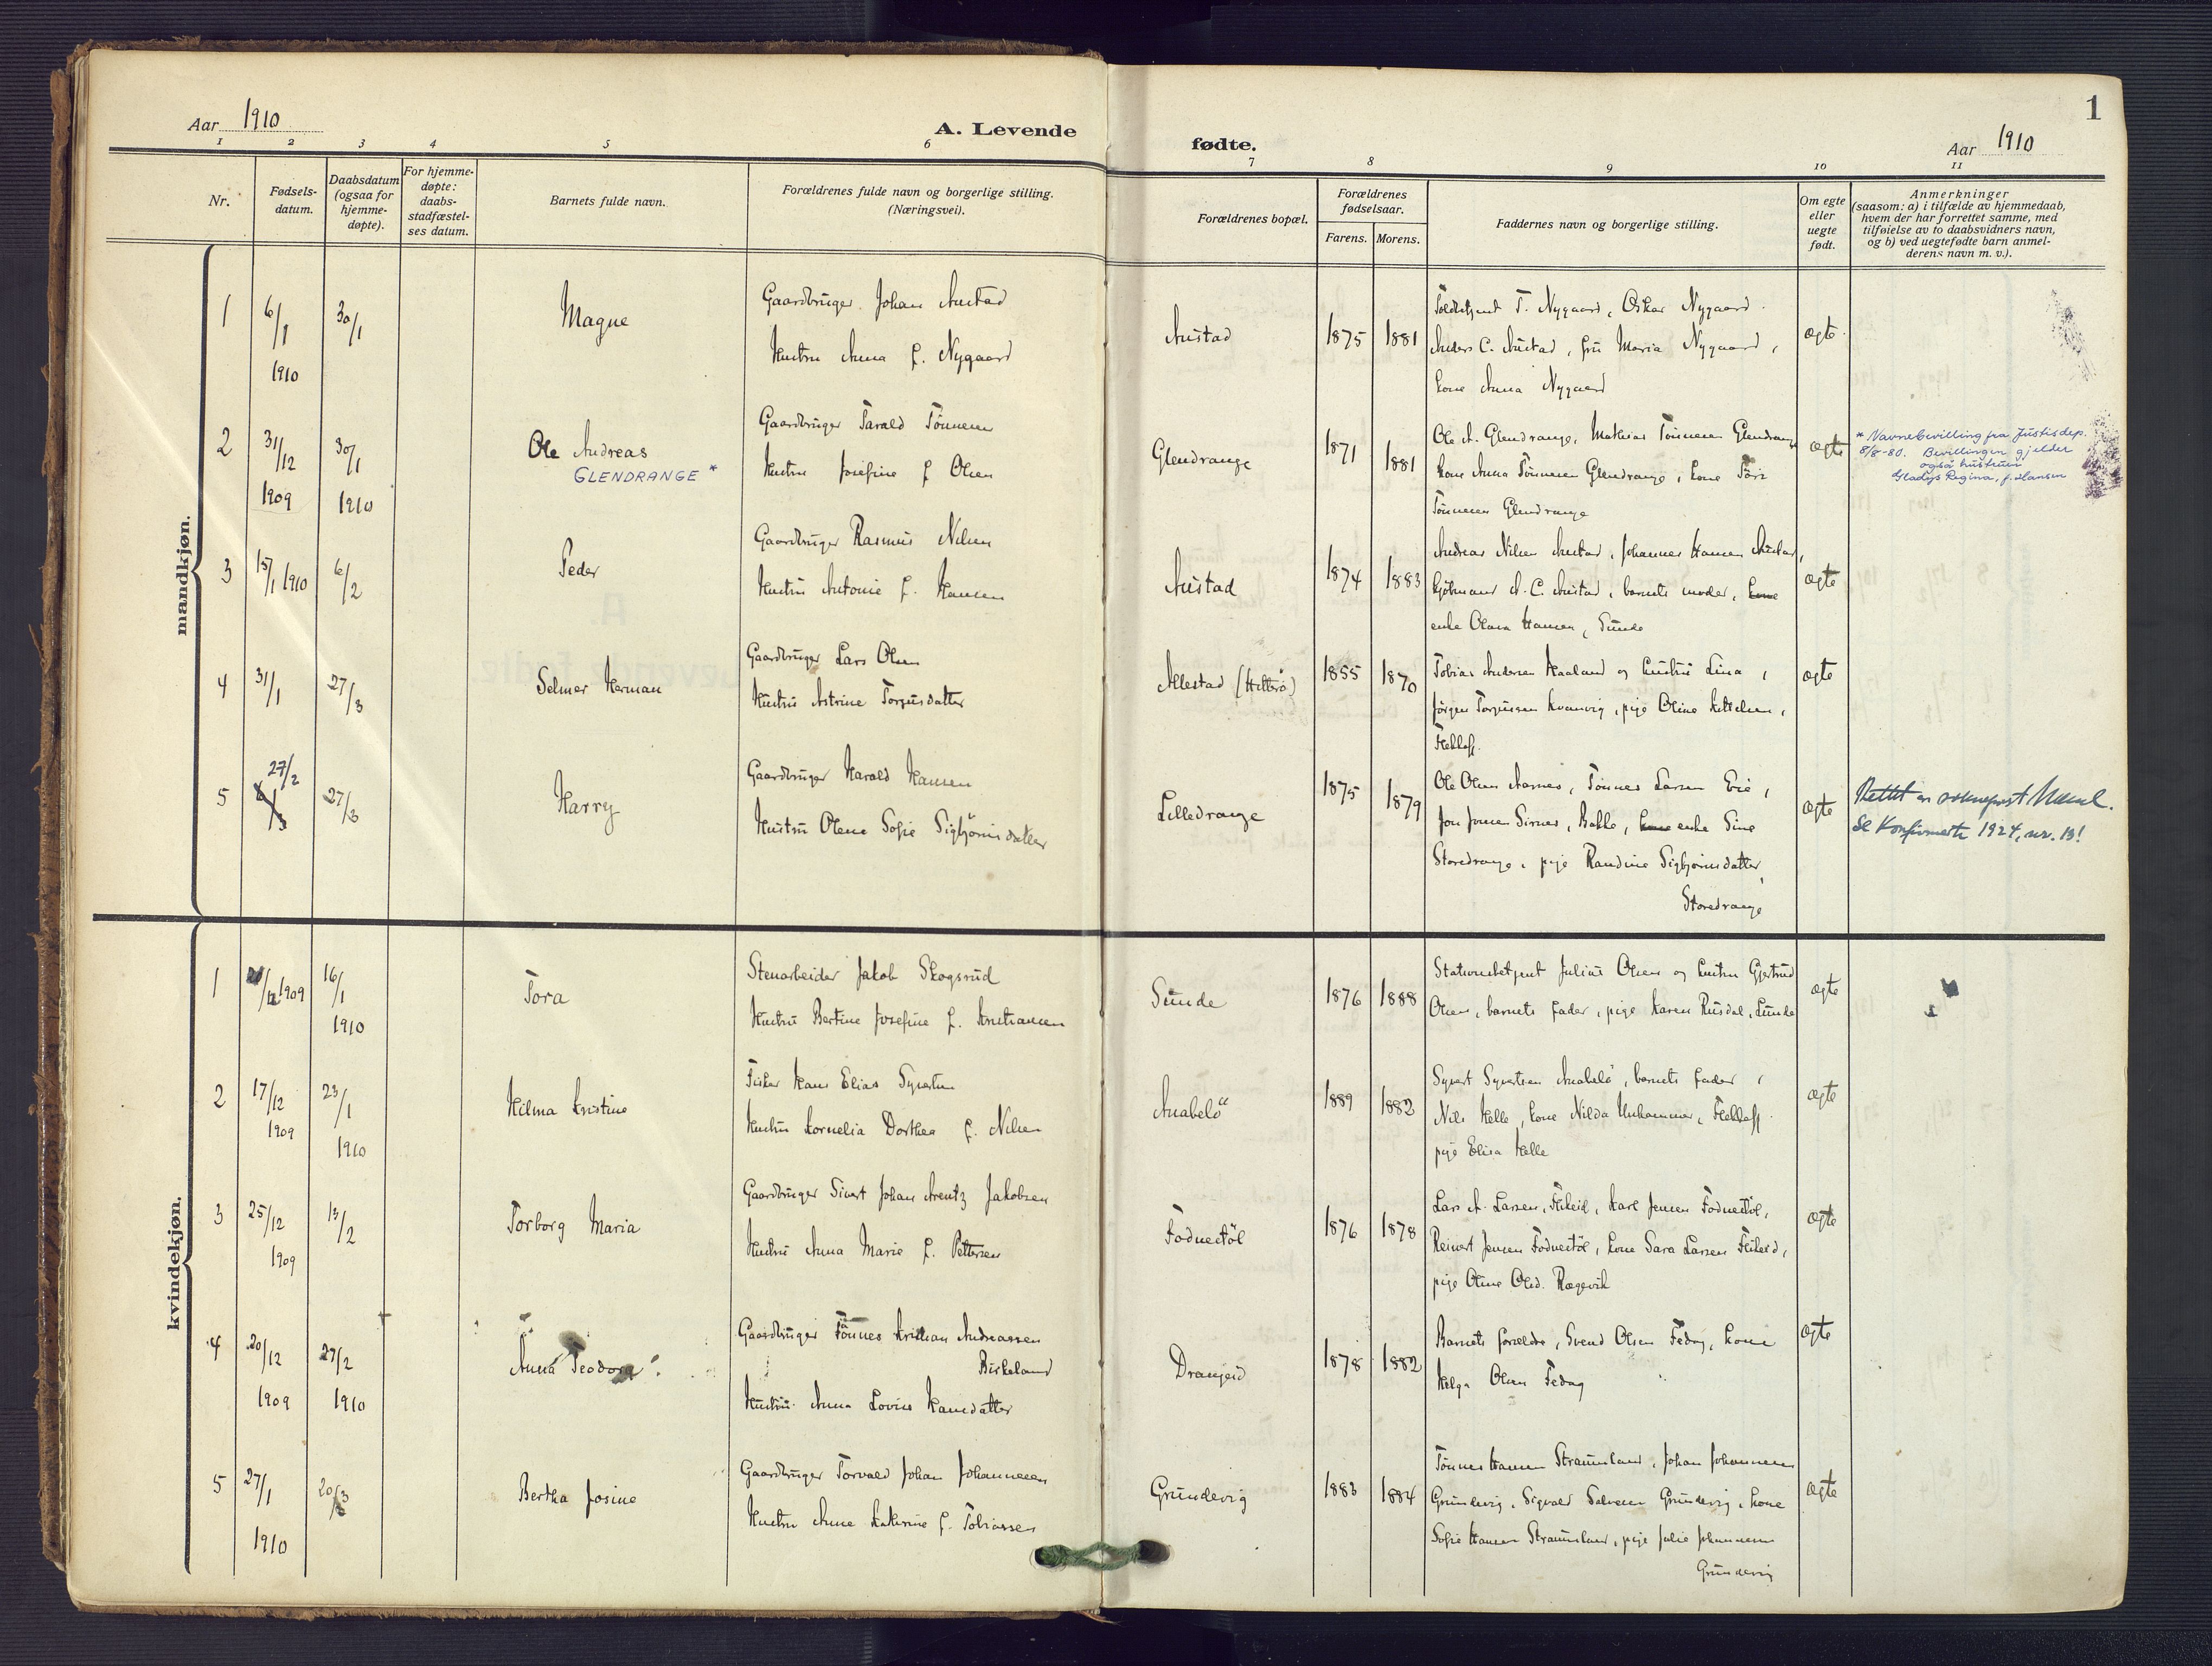 Aar 1910
A. Levende
fødte.
Aar 1910
1
1 2 3 4 5 6 7 8 9 10 11
Nr.
Fødsels-
datum.
Daabsdatum
(ogsaa for
hjemme-
døpte).
For hjemme-
døpte:
daabs-
stadfæstel-
ses datum.
Barnets fulde navn.
Forældrenes fulde navn og borgerlige stilling.
(Næringsvei).
Forældrenes bopæl.
Forældrenes
fødselsaar.
Farens. Morens.
Faddernes navn og borgerlige stilling.
Om egte
eller
uegte
født.
Anmerkninger
(saasom: a) i tilfælde av hjemmedaab,
hvem der har forrettet samme, med
tilføielse av to daabsvidners navn,
og b) ved uegtefødte barn anmel-
derens navn m. v.).
mandkjøn.
1 6/1 1910 30/1 Magne
Gaardbruger Johan Austad
Hustru Anna f. Nygaard
Austad 1875 1881
T. Nygaard, Oskar Nygaard
Anders C. Austad, fru Maria Nygaard,
kone Anna Nygaard
ægte
2 31/12 1909 30/1 1910 Ole Andreas
GLENDRANGE *
Gaardbruger Tarald Tönnesen
Hustru Josefine f Olsen
Glendrange 1871 1881
Ole A. Glendrange, Mathias Tönnesen Glendrange
kone Anna Tönnesen Glendrange, kone
Tönnesen Glendrange
ægte
* Navnebevilling fra Justisdep.
8/8-80. Bevillingen gjelder
også hustruen
Gladys Regina, f. Hansen
3 15/1 1910 6/2 Peder
Gaardbruger Rasmus Nilsen
Hustru Antonie f. Hansen
Austad 1874 1883
Andreas Nilsen Austad, Johannes Hansen Austad,
Kjöbmand A. C. Austad, barnets moder, kone
enke Olava Hansen, Sunde
ægte
4 31/1 27/3 Selmer Herman
Gaardbruger Lars Olsen
Hustru Astrine Torjusdatter
Allestad (Hitterö) 1855 1870
Tobias Andersen Haaland og hustru Lina,
Jörgen Torjussen Kvanvig, pige Oline Kittelsen,
Flekkefj.
ægte
5 27/2 27/3 Harry
Gaardbruger Harald Hansen
Hustru Olene Sofie Sigbjörnsdatter
Lilledrange 1875 1879
Ole Olsen Aarnes, Tönnes Larsen Eie,
Jon Jonsen Sirnes, Bakke, kone enke Sine
Storedrange, pige Randine Sigbjörnsdatter,
Storedrange
ægte
Rettet av sokneprest
Se Konfirmerte 1924, nr. 13!
kvindekjøn.
1 /12 1909 16/1 1910 Tora
Stenarbeider Jakob Skogsrud
Hustru Bertine Josefine f. Kristiansen
Sunde 1876 1888
Stationsbetjent Julius Olsen og hustru Gjertrud
Olsen, barnets fader, pige Karen Rusdal, Lunde
ægte
2 17/12 1909 23/1 1910 Hilma Kristine
Fisker Hans Elias Syvertsen
Hustru Kornelia Dorthea f. Nilsen
Anabelö 1889 1882
Syvert Syvertsen Anabelö, barnets fader,
Nils Helle, kone Nilda Unhammer, Flekkefj.
pige Elisa Helle
ægte
3 25/12 1909 13/2 Torborg Maria
Gaardbruger Sivert Johan Arentz Jakobsen
Hustru Anna Marie f. Pettersen
Fodnestöl 1876 1878
Lars A. Larsen, Flikeid, Karl Jensen Fodnestöl,
Reinert Jensen Fodnestöl, kone Sara Larsen Flikeid,
pige Oline Olsd. Rægevik
ægte
4 20/12 1909 27/2 1910 Anna Teodora
Gaardbruger Tönnes Kristian Andreassen
Birkeland
Hustru Anna Lovise Hansdatter
Drangeid 1878 1882
Barnets forældre, Svend Olsen Fedog, kone
Helga Olsen Fedog
ægte
5 27/1 1910 20/3 Bertha Josine
Gaardbruger Torvald Johan Johannesen
Hustru Anne Katrine f. Tobiassen
Grundevig 1883 1884
Tönnes Hansen Straumland, Johan Johannesen
Grundevig, Sigvald Salvesen Grundevig, kone
Sofie Hansen Straumland, pige Julie Johannesen
Grundevig
ægte